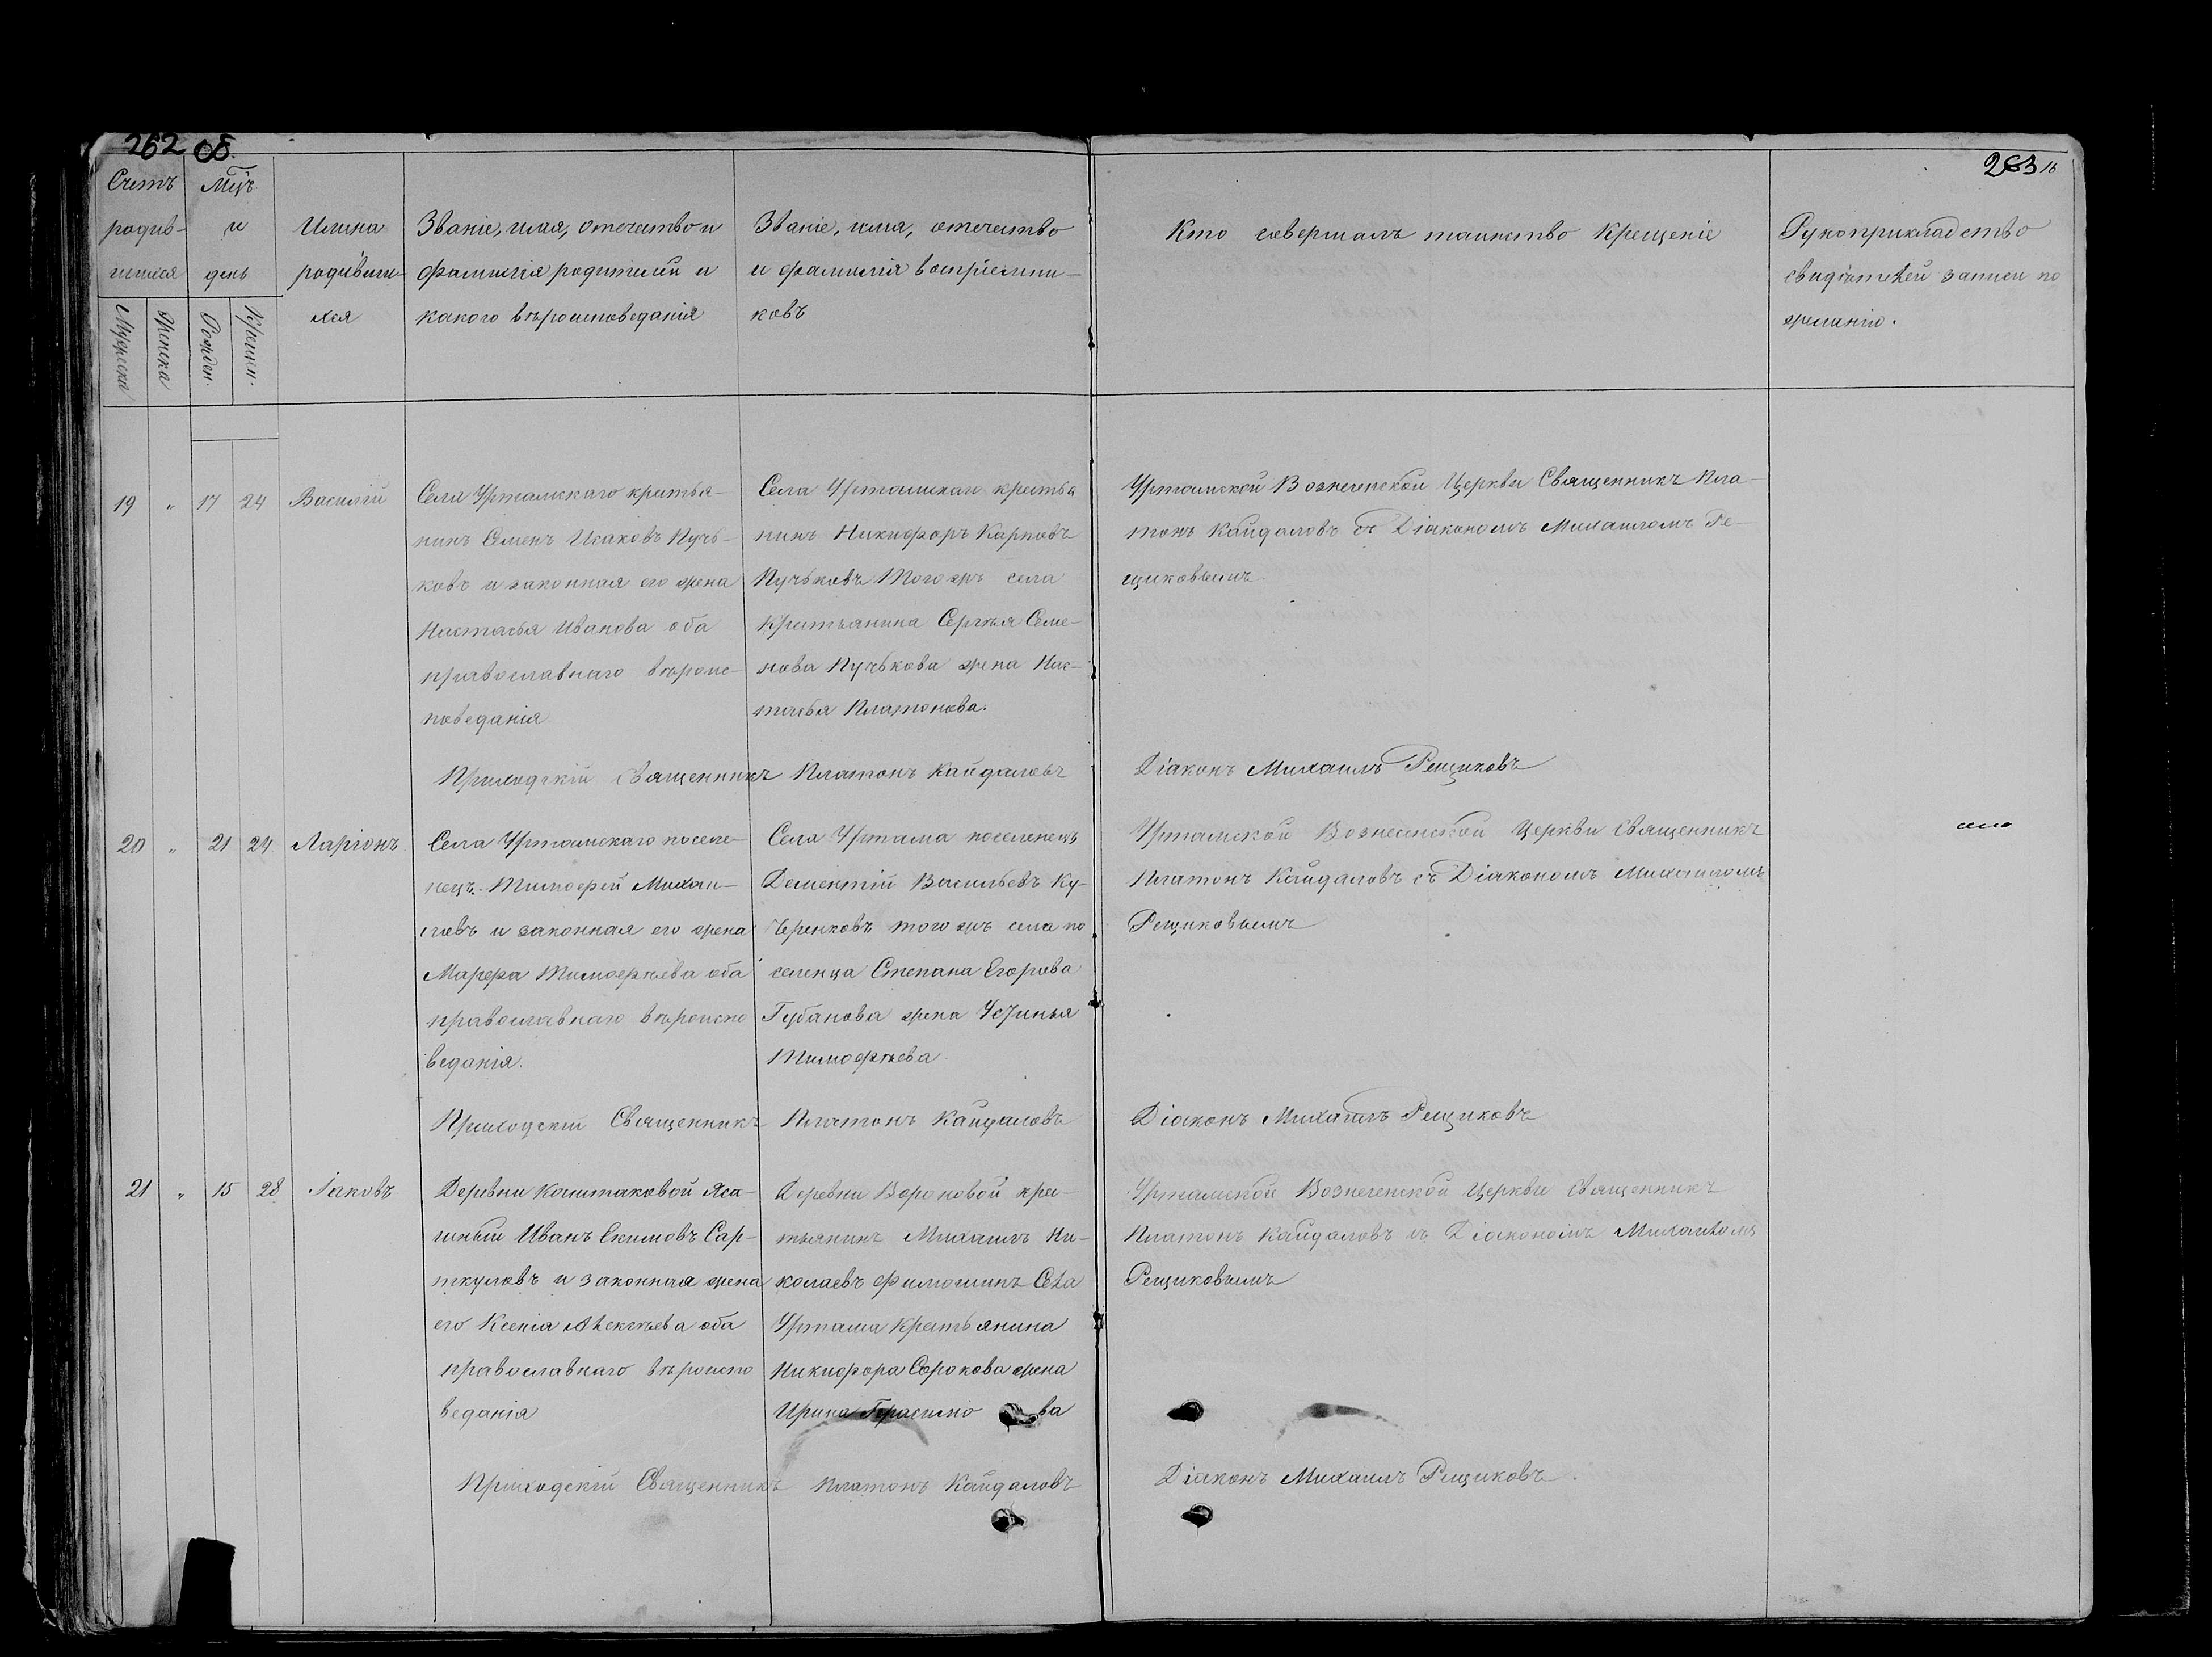 262 об.
263 16
Счетъ
родив-
шихся
Мужеска
Женска
Мцъ
и
день
Рожден.
Крещен.
Имина
родивши-
хся
Званіе, имя, отечество и
фамилія родителей и
какого вѣроисповеданія
Званіе, имя, отечество
и фамилія воспріемни-
ковъ
Кто совершалъ таинство Крещеніе
Рукоприкладство
свидѣтелей записи по
желанію.
19 " 17 24 Василій
Села Уртамскаго крестья-
нинъ Семенъ Исаковъ Пучь-
ковъ и законная его жена
Настасья Иванова оба
православнаго вѣроис-
поведанія
Села Уртамскаго крестья
нинъ Никифоръ Карповъ
Пучьковъ Того жъ села
Крестьянина Сергѣя Семе-
нова Пучькова жена Нас-
тасья Платонова.
Уртамской Вознесенской Церкви Священникъ Пла-
тонъ Кайдаловъ съ Діакономъ Михаиломъ Ре-
щиковымъ
Приходскій Священникъ Платонъ Кайдаловъ
Діаконъ Михаилъ Рещиковъ
20 " 21 24 Ларіонъ
Села Уртамскаго поселе-
нецъ Тимофей Михаи-
ловъ и законная его жена
Марфа Тимофѣева оба
православнаго вѣроиспо
веданія.
Села Уртама поселенецъ
Дементій Васильевъ Ку-
черенковъ того жъ села по
селенца Степана Егорова
Губанова жена Устинья
Тимофѣева.
Уртамской Вознесенской Церкви Священникъ
Платонъ Кайдаловъ съ Діакономъ Михаиломъ
Рещиковымъ
Приходскій Священникъ Платонъ Кайдаловъ
Діаконъ Михаилъ Рещиковъ
21 " 15 28 Іаковъ
Деревни Каштаковой Яса-
шный Иванъ Екимовъ Сар-
ткуловъ и законная жена
его Ксенія Алексѣева оба
православнаго вѣроиспо
веданія
Деревни Вороновой крес-
тьянинъ Михаилъ Ни-
колаевъ Филюшинъ Села
Уртама Крестьянина
Никифора Сорокова жена
Ирина Герасимо ва
Уртамской Вознесенской Церкви Священникъ
Платонъ Кайдаловъ съ Діакономъ Михаиломъ
Рещиковымъ
Приходскій Священникъ Платонъ Кайдаловъ
Діаконъ Михаилъ Рещиковъ.